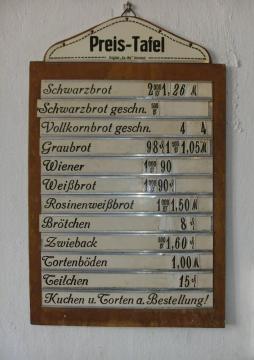 Preis-Tafel
Schwarzbrot 2000 1,26 M
Schwarzbrot geschn. 500
Vollkornbrot geschn. 4 4
Graubrot 98 1500 1,05 M
Wiener 1000 90
Weißbrot 1000 90
Rosinenweißbrot 1000 1,50 M
Brötchen 8
Zwieback 500 1,60
Tortenböden 1,00 M
Teilchen 15
Kuchen u. Torten a. Bestellung!